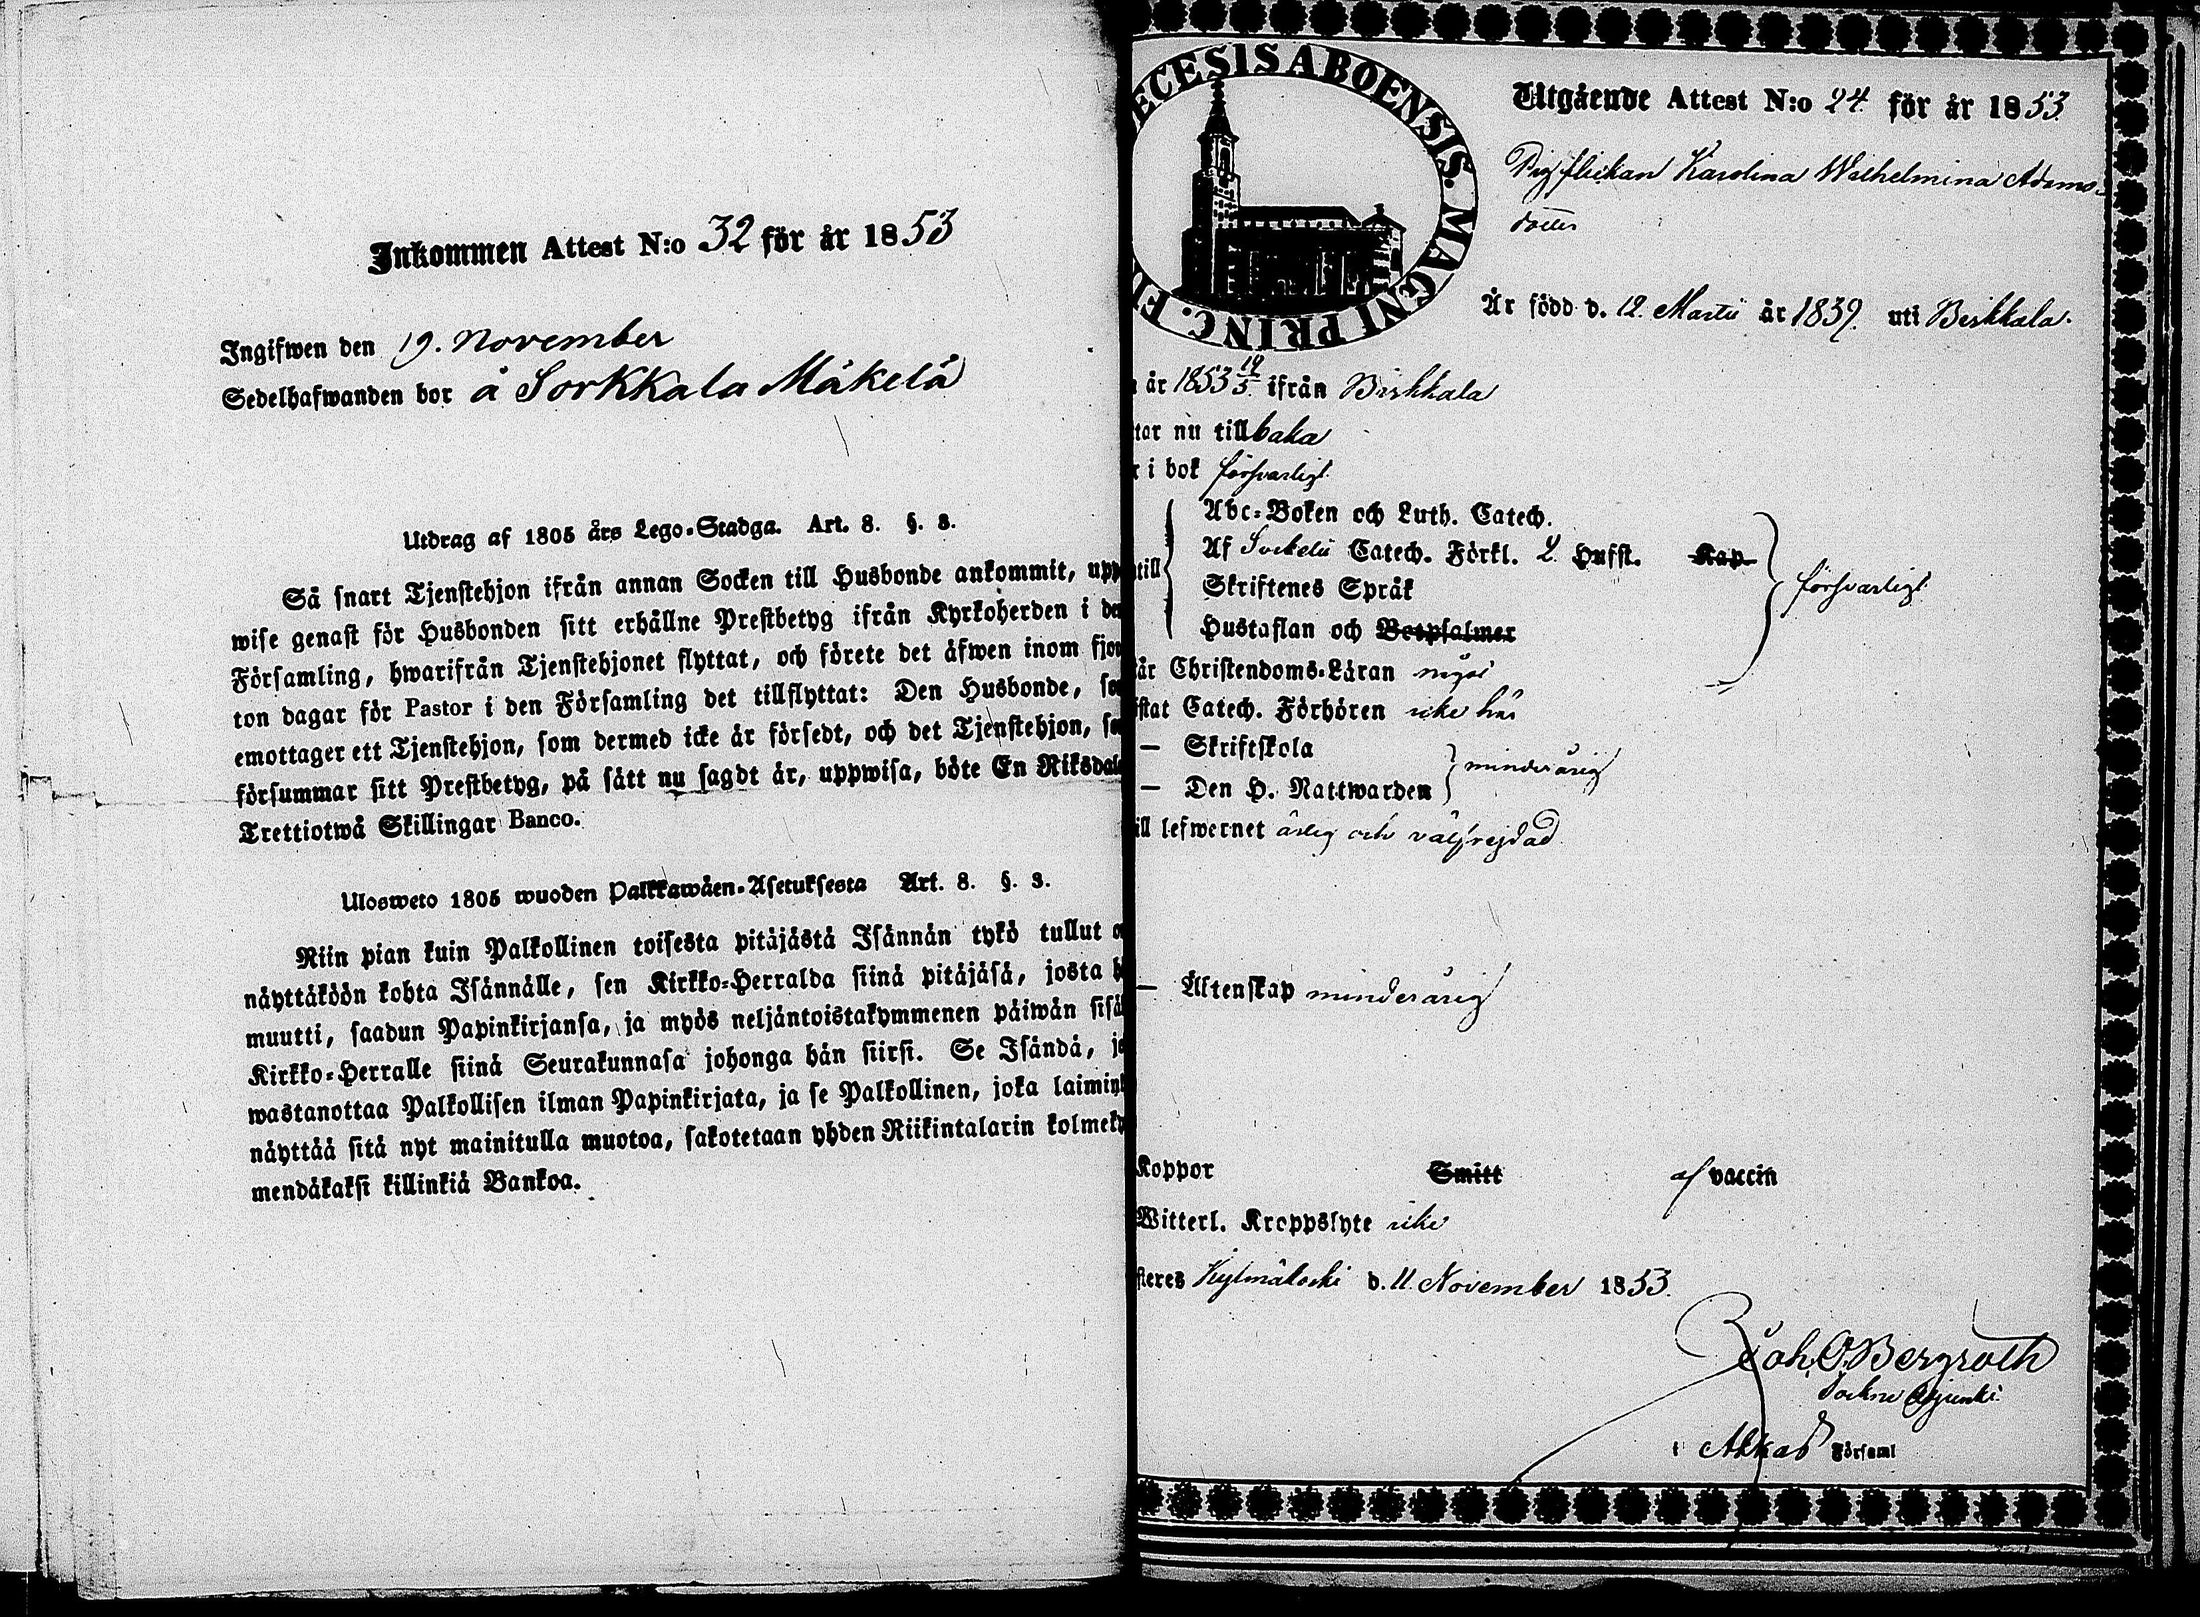 Inkommen Attest N:o 32 för år 1853
Ingifwen den 19. November
Sedelhafwanden bor å Sorkkala Mäkelä
Utdrag af 1805 års Lego-Stadga. Art. 8. §. 3.
Så snart Tjenstehjon ifrån annan Socken till Husbonde ankommit, upp
wise genast för Husbonden sitt erhållne Prestbetyg ifrån Kyrkoherden i de
Församling, hwarifrån Tjenstehjonet flyttat, och förete det äfwen inom fjor
ton dagar för Pastor i den Församling det tillflyttat: Den Husbonde, so
emottager ett Tjenstehjon, som dermed icke är försedt, och det Tjenstehjon, so
försummar sitt Prestbetyg, på sätt nu sagdt är, uppwisa, böte En Riksdal
Trettiotwå Skillingar Banco.
Ulosweto 1805 wuoden Palkkawäen-Asetuksesta Art. 8. §. 3.
Niin pian kuin Palkollinen toisesta pitäjästä Isännän tykö tullut o
näyttäköön kohta Isännälle, sen Kirkko-Herralda siinä pitäjäsä, josta h
muutti, saadun Papinkirjansa, ja myös neljäntoistakymmenen päiwän sisä
Kirkko-Herralle siinä Seurakunnasa johonga hän siirsi. Se Isändä, jo
wastanottaa Palkollisen ilman Papinkirjata, ja se Palkollinen, joka laiminy
näyttää sitä nyt mainitulla muotoa, sakotetaan yhden Riikintalarin kolmeky
mendäkaksi killinkiä Bankoa.
ECESIS ABOENSIS. MAGNI PRINC. F
Utgående Attest N:o 24 för år 1853
Pigflickan Karolina Wilhelmina Adams-
dotter
Är född d. 12. Martii år 1839. uti Birkkala.
år 1853 12/5 ifrån Birkkala
tar nu tillbaka
r i bok försvarligt
Abc-Boken och Luth. Catech.
till Af Svebelii Catech. Förkl. 2 Hufst. Kap försvarligt
Skriftenes Språk
Hustaflan och Botpsalmer
år Christendoms-Läran något
stat Catech. Förhören icke här
— Skriftskola
minderårig
— Den H. Nattwarden
ill lefwernet ärlig och välfrejdad
— Äktenskap minderårig
Koppor Smitt af vaccin
Witterl. Kroppslyte icke
steres Kylmäkoski d. 11. November 1853.
Joh. O. Bergroth
Sockne Adjunkt.
i Akkas Församl